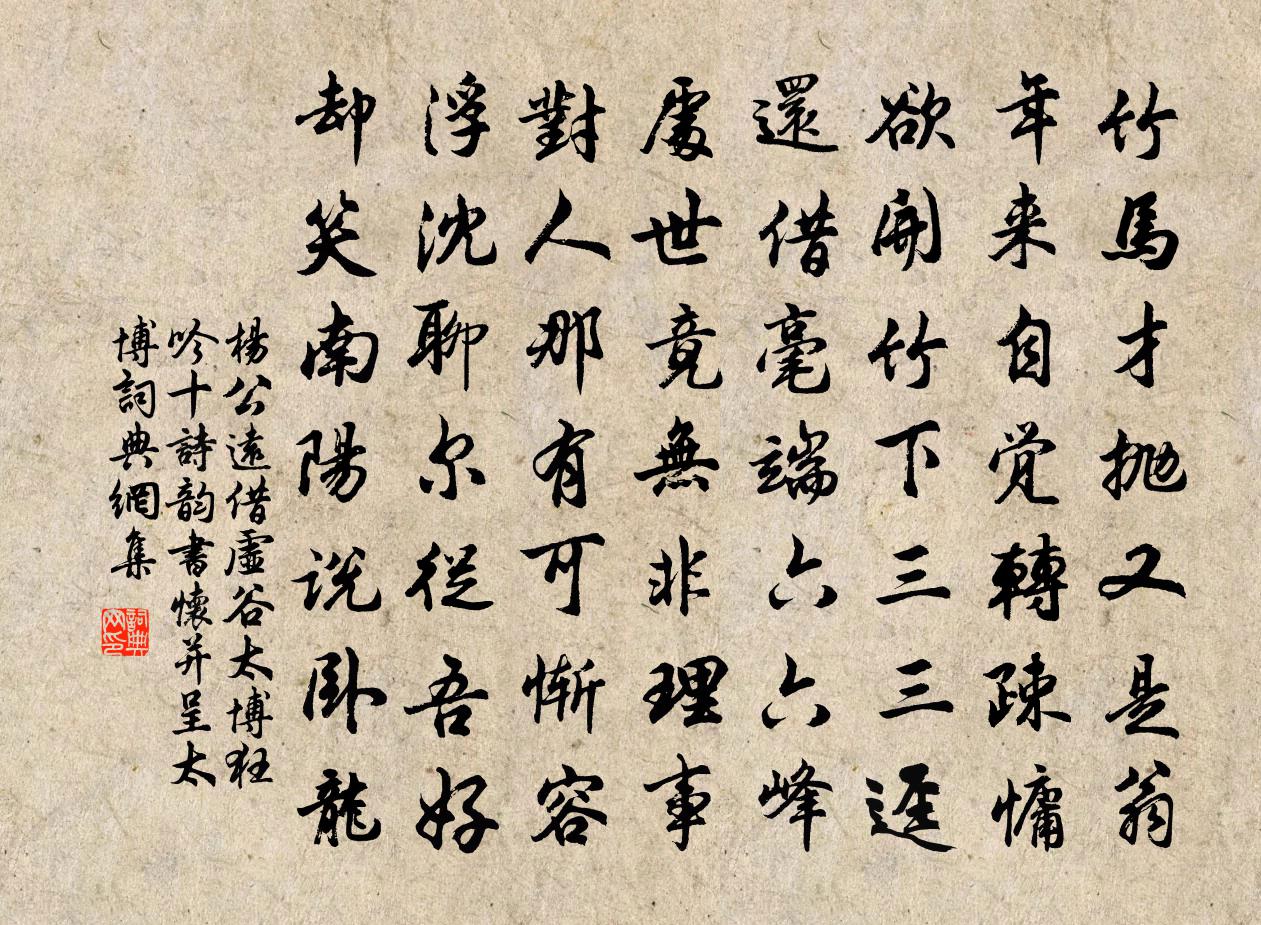 竹馬才抛又是翁
年来自覺轉疎慵
欲開竹下三三逕
還借毫端六六峰
處世竟無非理事
對人那有可慚容
浮沈聊尔從吾好
却笑南陽說卧龍
楊公遠借虛谷太博狂
吟十詩韵書懷并呈太
博詞典網集
詞典网印